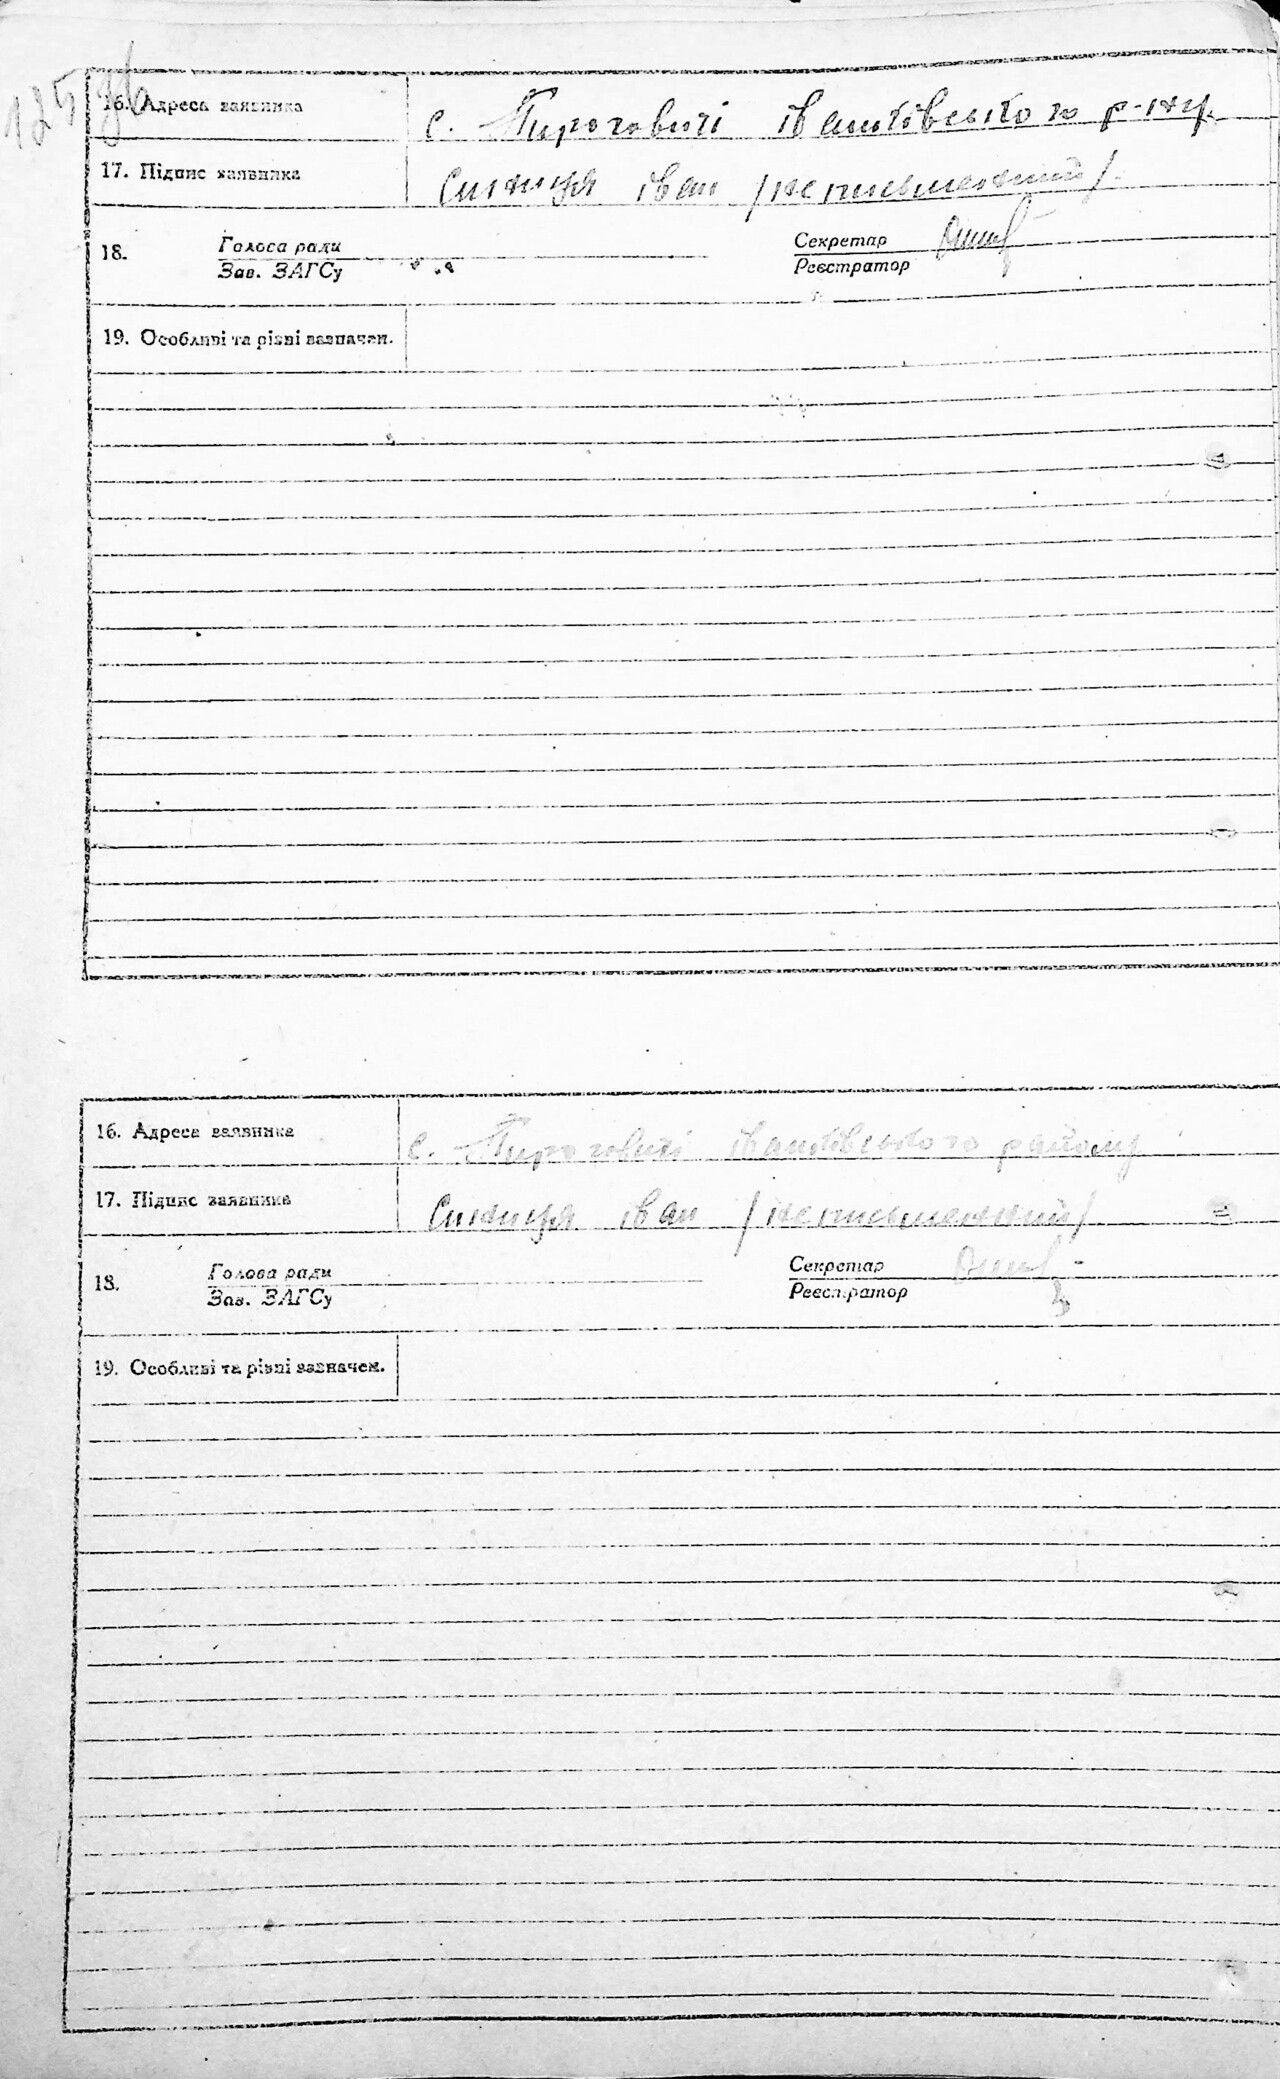 125
16. Адреса заявника с. Пироговичі Іванківського р-ну.
17. Підпис заявника Синиця Іван /неписьменний/.
18. Голова ради Секретар
Зав. ЗАГСу Реєстратор
19. Особливі та різні зазначен.
16. Адреса заявника с. Пироговичі Іванківського району
17. Підпис заявника Синиця Іван /неписьменний/
18. Голова ради Секретар
Зав. ЗАГСу Реєстратор
19. Особливі та різні зазначен.